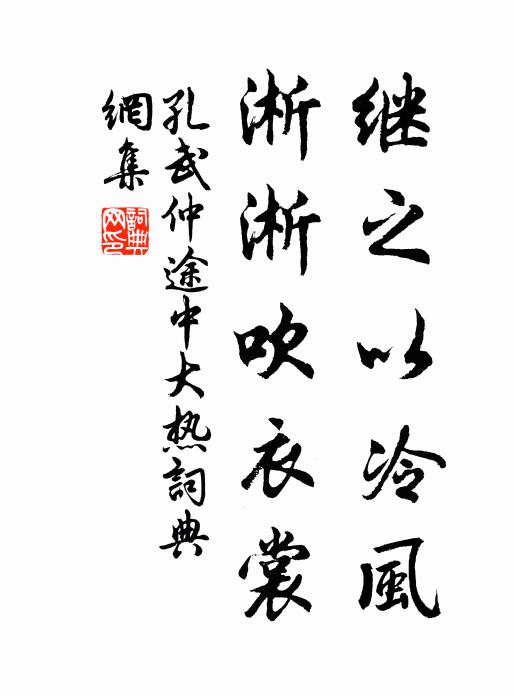 继之以冷風
淅淅吹衣裳
孔武仲途中大热詞典
網集
詞典
网印